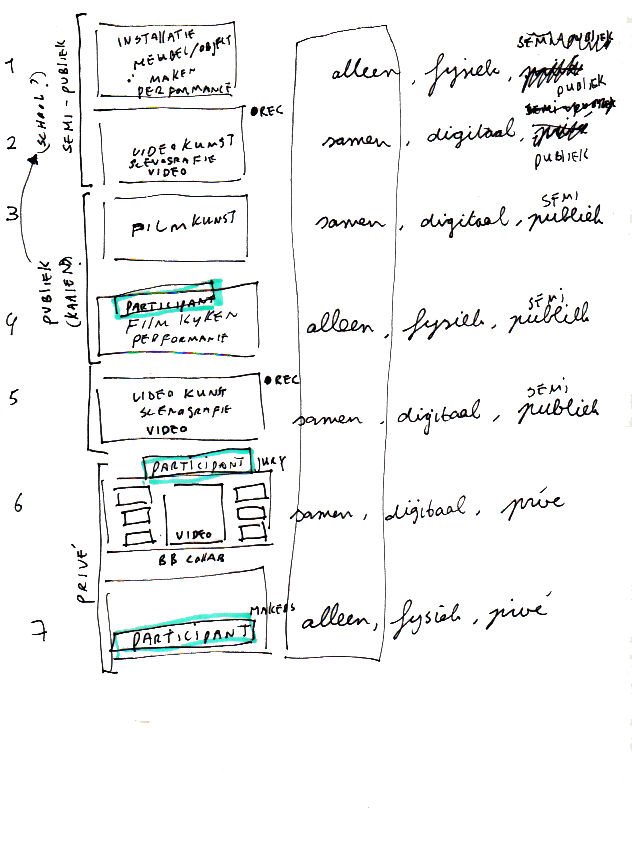 SEMI - PUBLIEK
(SCHOOL?)
1
INSTALLATIE
MEUBEL/OBJEKT
MAKEN
PERFORMANCE
alleen, fysiek,
PUBLIEK
2
●REC
VIDEO KUNST
SCENOGRAFIE
VIDEO
samen, digitaal,
PUBLIEK
PUBLIEK
3
FILM KUNST
samen, digitaal, publiek
SEMI
4
PARTICIPANT
FILM KYKEN
PERFORMANCE
alleen, fysiek, publiek
SEMI
5
●REC
VIDEO KUNST
SCENOGRAFIE
VIDEO
samen, digitaal, publiek
SEMI
PRIVÉ
6
PARTICIPANT JURY
VIDEO
BB COLLAB
samen, digitaal, privé
7
MAKERS
PARTICIPANT
alleen, fysiek, privé